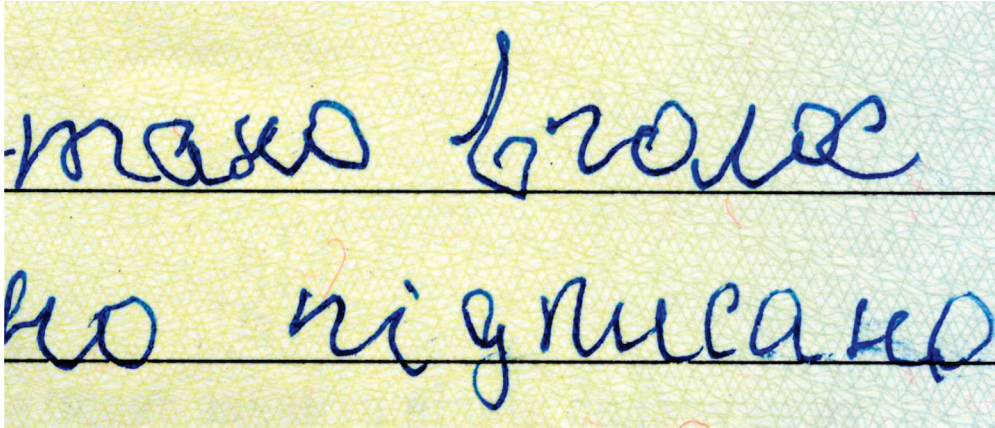 тано вголос
но підписано